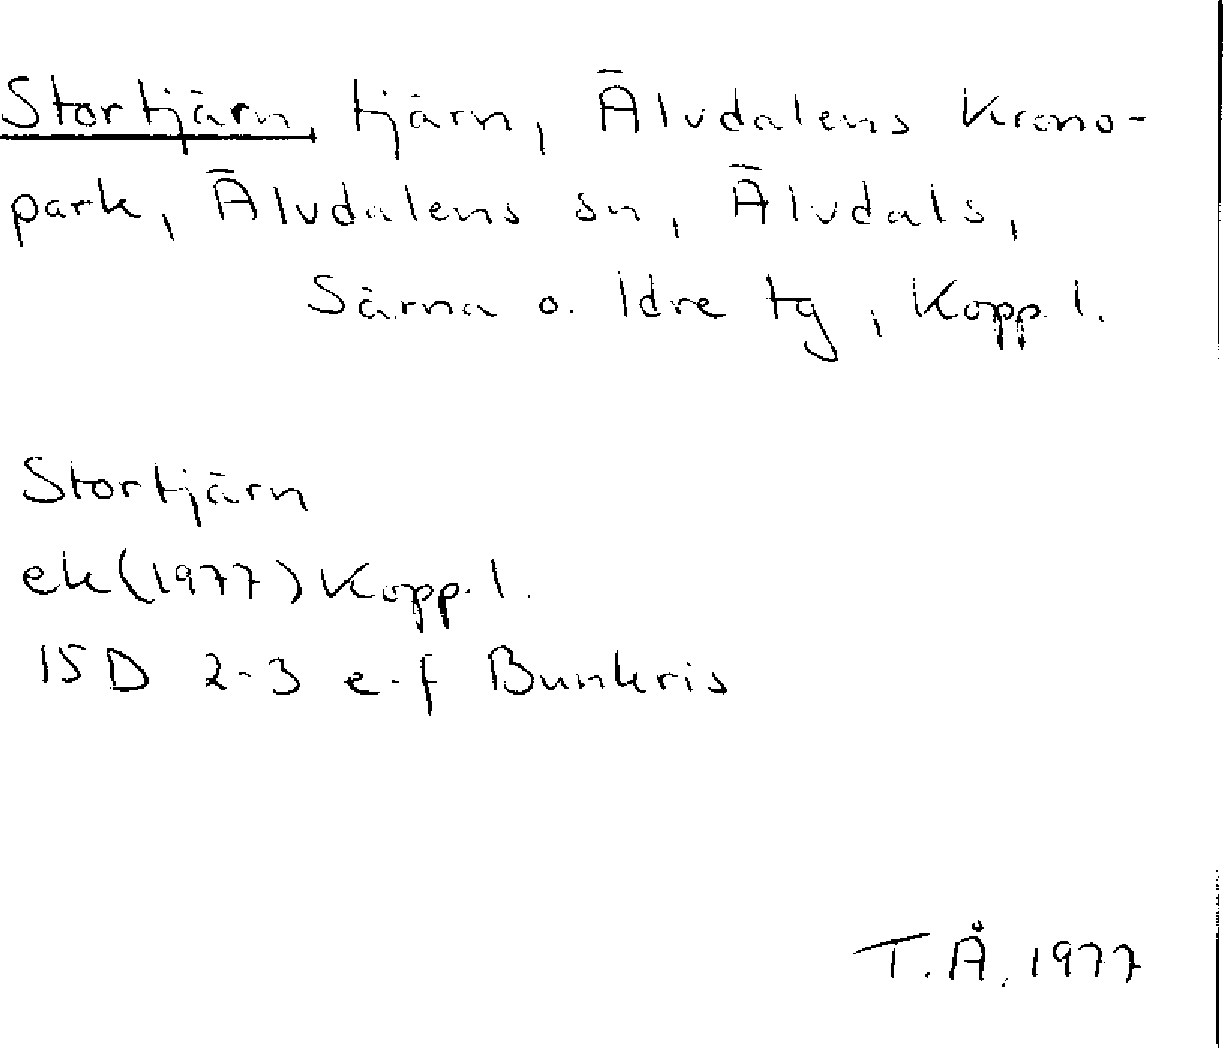 Stortjärn, tjärn, Älvdalens Krono-
park, Älvdalens sn, Älvdals,
Särna o. Idre tg, Kopp. l.
Stortjärn
ek (1977) Kopp. l.
15 D 2-3 e-f Bunkris
T.Å. 1977